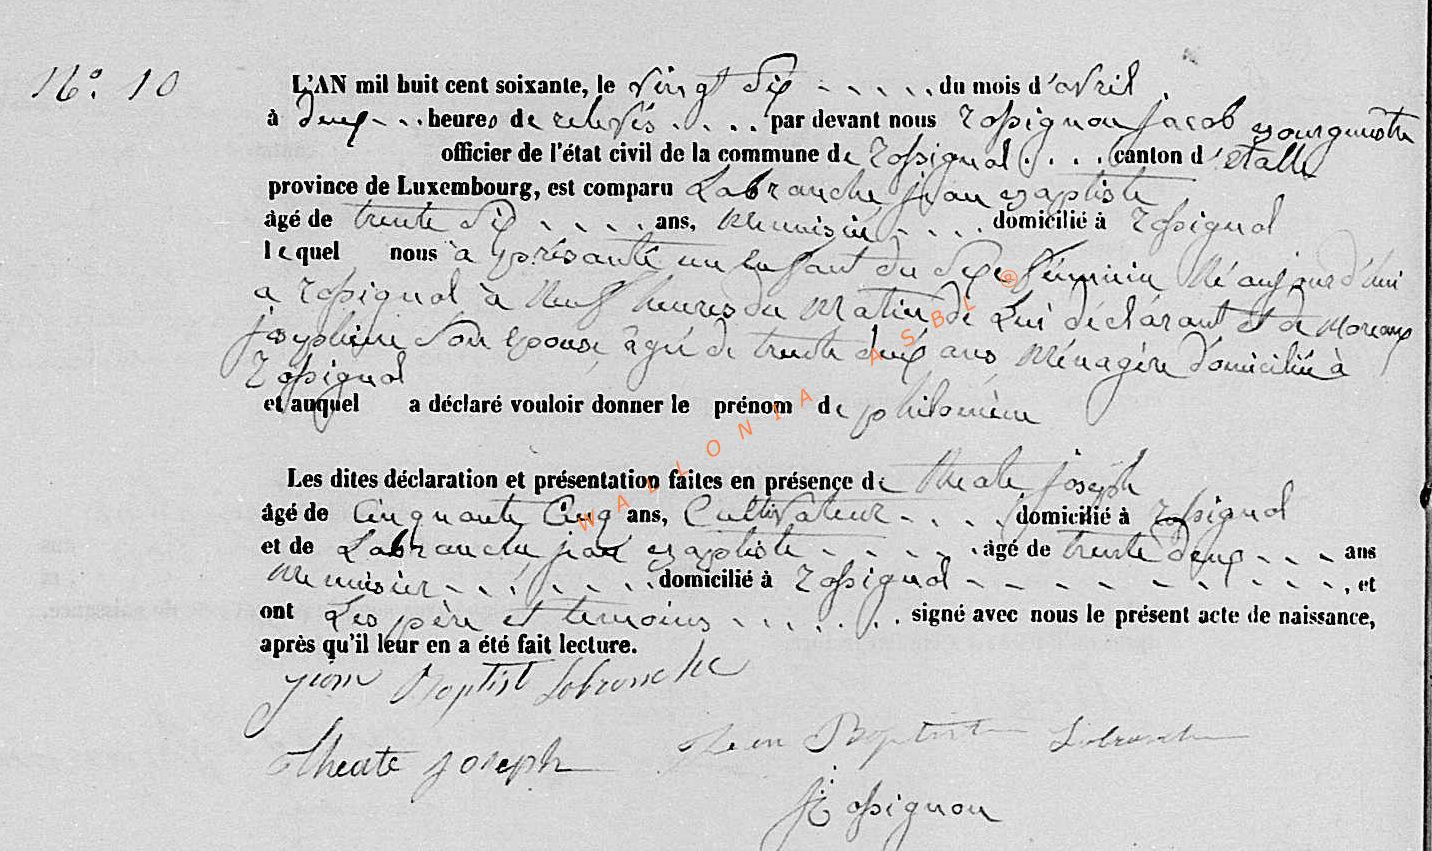 N° 10
L'AN mil huit cent soixante, le vingt Six - - - - - du mois d'avril
à deux - . . heures de relevés . . . . par devant nous Rossignon jacob Bourguesstre
officier de l'état civil de la commune de Rossignol . . . . canton d'étalle
province de Luxembourg, est comparu Labranche jean Baptiste
âgé de trente Six . . . . . ans, Menuisié . . . . domicilié à Rossignol
lequel nous à présanté un Enfant du Sexe féminin Né aujourd'hui
a Rossignol à Neuf heures du Matin de Lui déclarant et de Moreaux
josephine Son épouse âgé de trente deux ans Ménagère domiciliée à
Rossignol
et auquel a déclaré vouloir donner le prénom de philomène
Les dites déclaration et présentation faites en présence de theate joseph
âgé de Cinquante Cinq ans, Cultivateur - . . . domicilié à Rossignol
et de Labranche jean Baptiste - . . . . . âgé de trente deux - - - ans
Menuisier - - . . - . . domicilié à Rossignol - - - - - - - - - , et
ont Les père et temoins - . . . . . . signé avec nous le présent acte de naissance,
après qu'il leur en a été fait lecture.
jean Baptist Labranche
theate joseph Jean Baptist Labranche
J Rossignon
WALLONIA ASBL ®